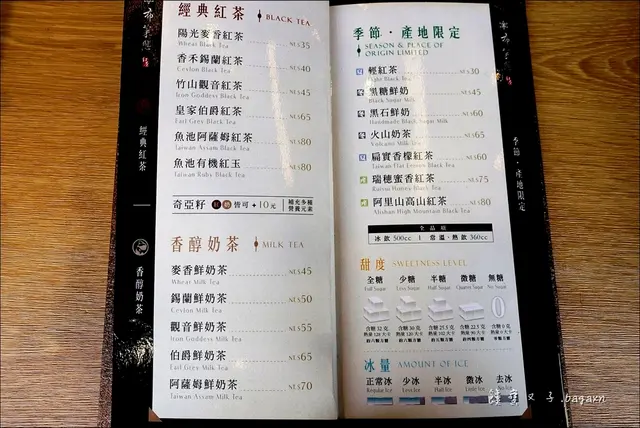 經典紅茶 BLACK TEA
陽光麥香紅茶 NT$35
Wheat Black Tea
香禾錫蘭紅茶 NT$40
Ceylon Black Tea
竹山觀音紅茶 NT$45
Iron Goddess Black Tea
皇家伯爵紅茶 NT$65
Earl Grey Black Tea
魚池阿薩姆紅茶 NT$80
Taiwan Assam Black Tea
魚池有機紅玉 NT$80
Taiwan Ruby Black Tea
奇亞籽 皆可+10元 補充多種營養元素
香醇奶茶 MILK TEA
麥香鮮奶茶 NT$45
Wheat Milk Tea
錫蘭鮮奶茶 NT$50
Ceylon Milk Tea
觀音鮮奶茶 NT$55
Iron Goddess Milk Tea
伯爵鮮奶茶 NT$65
Earl Grey Milk Tea
阿薩姆鮮奶茶 NT$70
Taiwan Assam Milk Tea
季節·產地限定
SEASON & PLACE OF
ORIGIN LIMITED
輕紅茶 NT$30
Light Black Tea
黑糖鮮奶 NT$45
Black Sugar Milk
黑石鮮奶 NT$60
Handmade Black Sugar Milk
火山奶茶 NT$65
Volcano Milk Tea
扁實香檬紅茶 NT$60
瑞穗蜜香紅茶 NT$75
Ruisui Honey Black Tea
阿里山高山紅茶 NT$80
Alishan High Mountain Black Tea
全品項
冰飲 500cc | 常溫·熱飲 360cc
甜度 SWEETNESS LEVEL
全糖 少糖 半糖 微糖 無糖
Full Sugar Less Sugar Half Sugar Quarter Sugar No Sugar
0
冰量 AMOUNT OF ICE
正常冰 少冰 半冰 微冰 去冰
Regular Ice Less Ice Half Ice Little Ice
經典紅茶
香醇奶茶
季節·產地限定